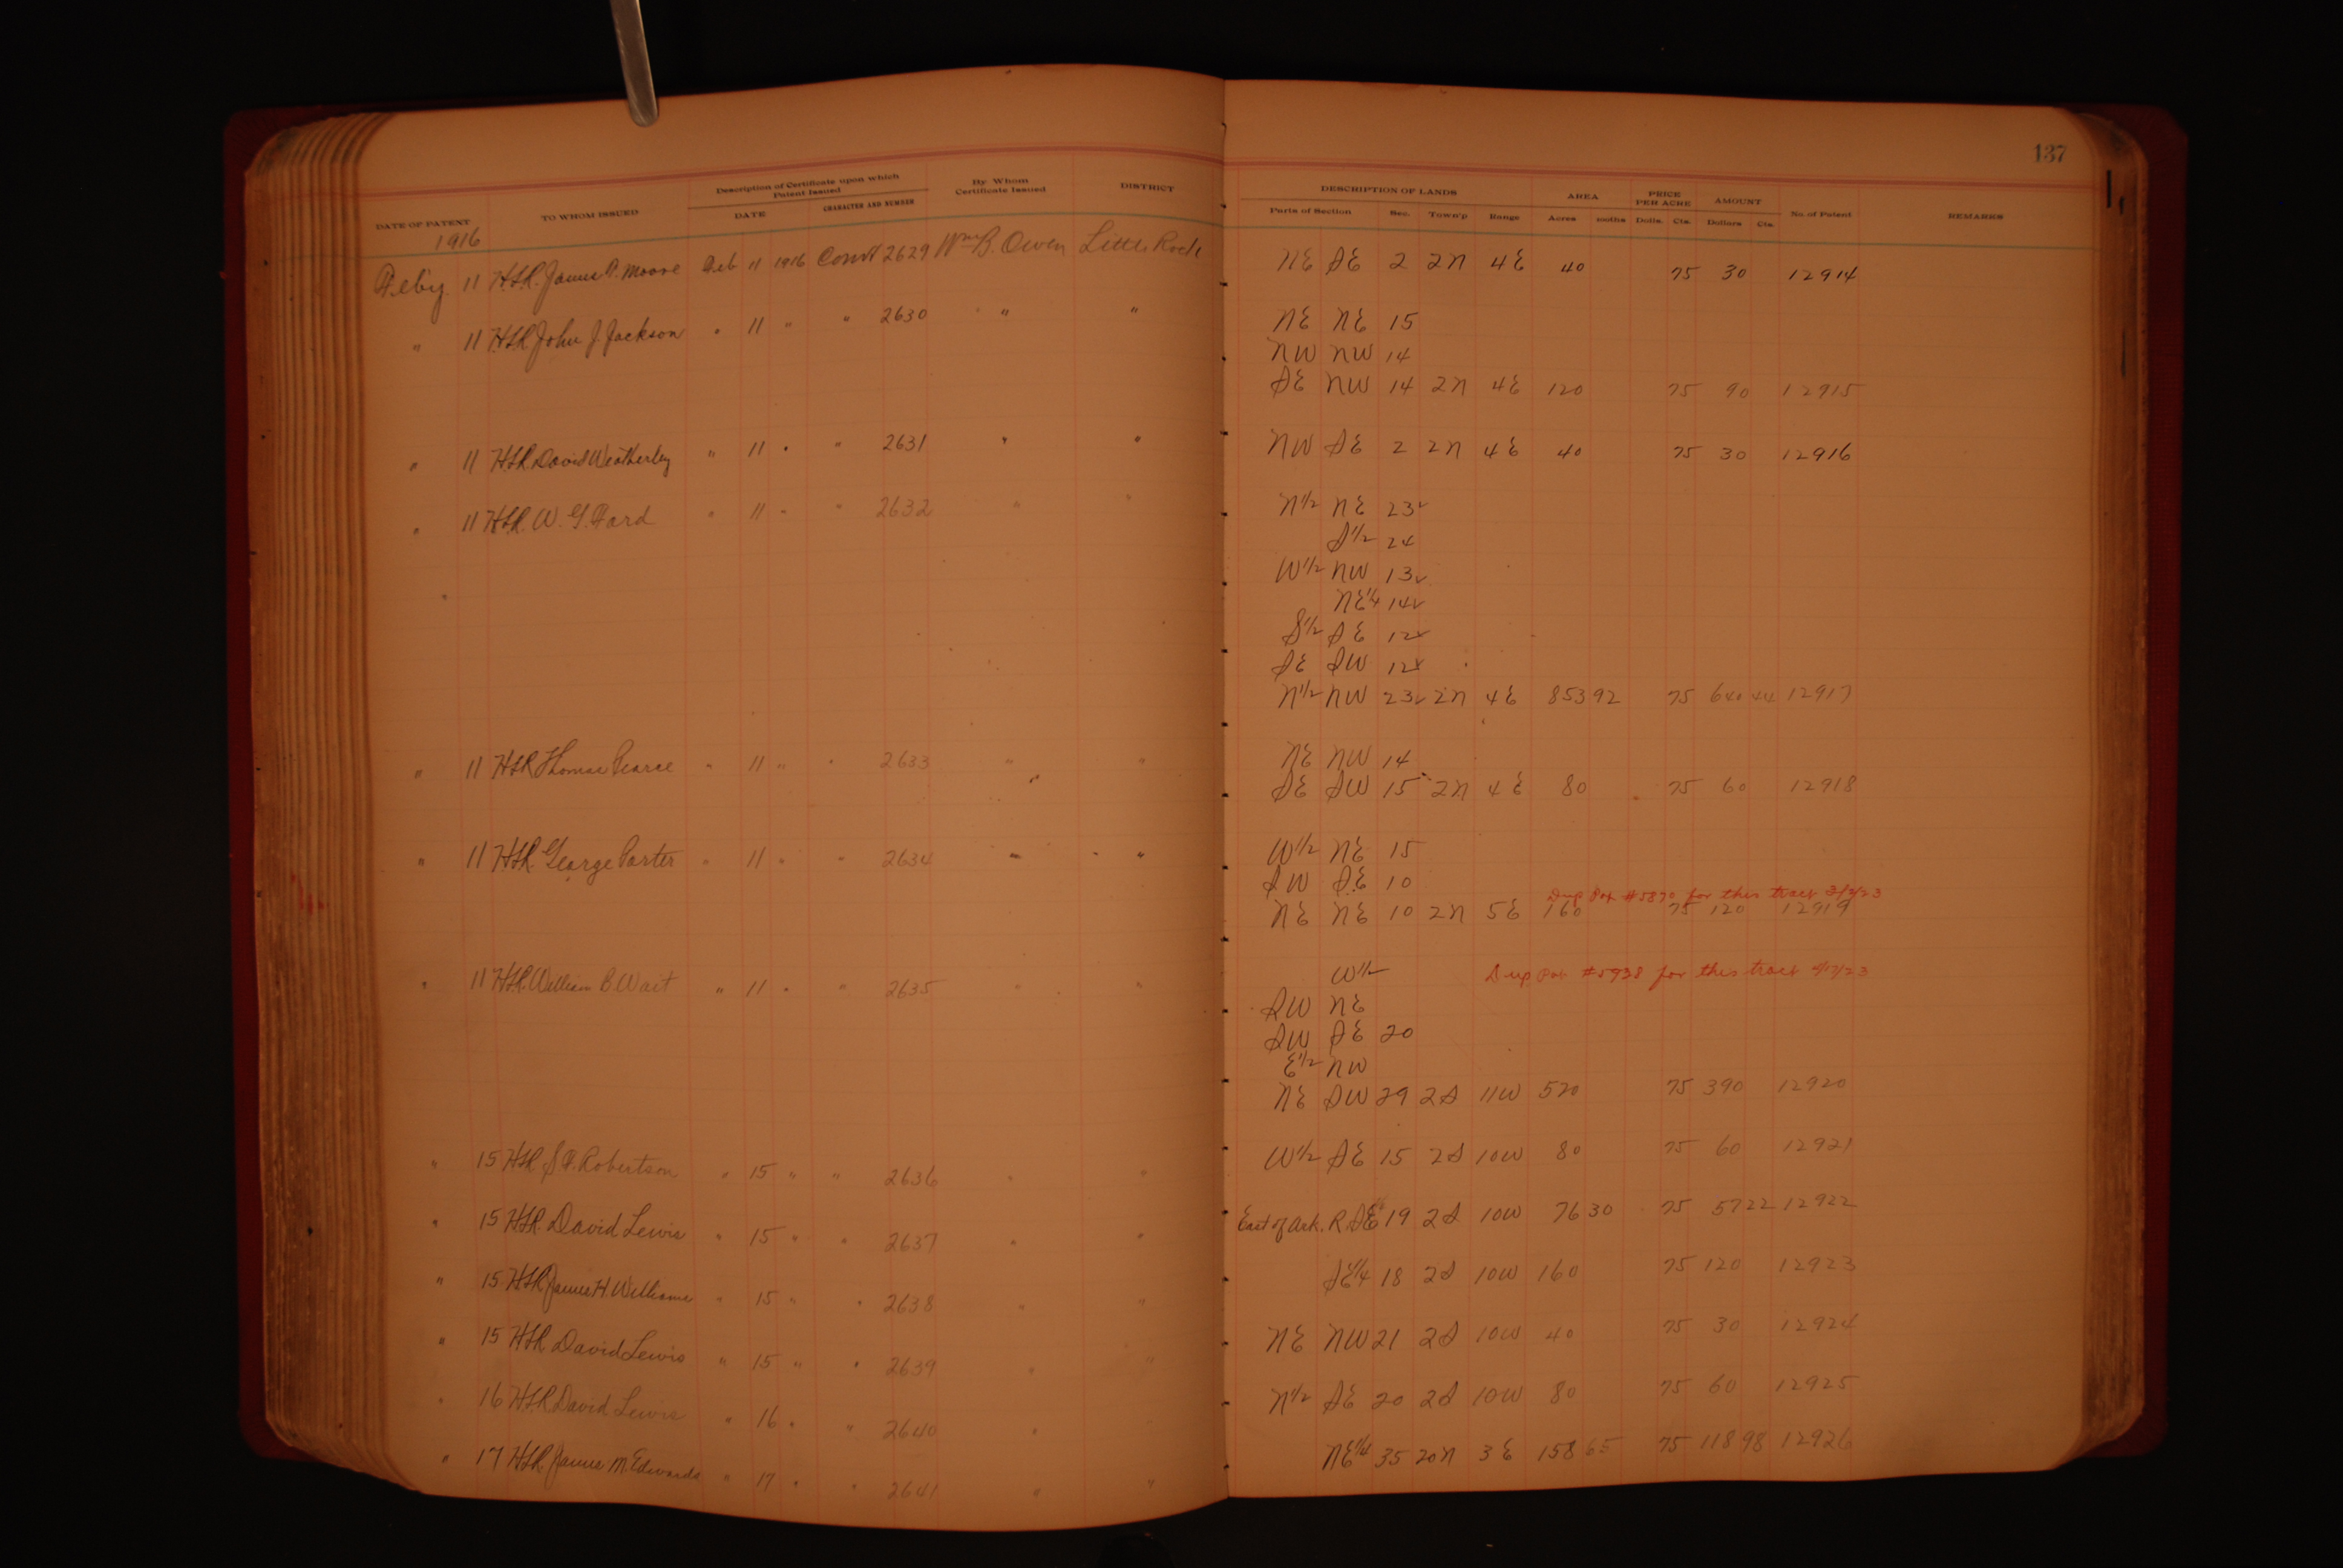 137
DATE OF PATENT TO WHOM ISSUED Description of Certificate upon which Patent Issued DATE CHARACTER AND NUMBER By Whom Certificate Issued DISTRICT DESCRIPTION OF LANDS Parts of Section Sec. Town'p Range AREA Acres 100ths PRICE PER ACRE Dolls. Cts. AMOUNT Dollars Cts. No. of Patent REMARKS
1916
Feb'y 11 H.S.R. James P. Moore Feb 11 1916 Const 2629 Wm B. Owen Little Rock NE SE 2 2N 4E 40 75 30 12914
" 11 H.S.R. John J. Jackson " 11 " " 2630 " " NE NE 15
NW NW 14
SE NW 14 2N 4E 120 75 90 12915
" 11 H.S.R. David Weatherley " 11 " " 2631 " " NW SE 2 2N 4E 40 75 30 12916
" 11 H.S.R. W. G. Ford " 11 " " 2632 " " N½ NE 23✓
S½ 24
W½ NW 13✓
NE¼ 14✓
S½ SE 12✓
SE SW 12✓
N½ NW 23✓ 2N 4E 853 92 75 640 44 12917
" 11 H.S.R. Thomas Pearce " 11 " " 2633 " " NE NW 14
SE SW 15 2N 4E 80 75 60 12918
" 11 H.S.R. George Porter " 11 " " 2634 " " W½ NE 15
SW SE 10
Dup Pat #5870 for this tract
NE NE 10 2N 5E 160 75 120 12919
" 11 H.S.R. William B. Wait " 11 " " 2635 " " W½ Dup Pat #5938 for this tract
SW NE
SW SE 20
E½ NW
NE SW 29 2S 11W 520 75 390 12920
" 15 H.S.R. S. F. Robertson " 15 " " 2636 " " W½ SE 15 2S 10W 80 75 60 12921
" 15 H.S.R. David Lewis " 15 " " 2637 " " East of Ark. R. SE¼ 19 2S 10W 76 30 75 57 22 12922
" 15 H.S.R. James H. Williams " 15 " " 2638 " " SE¼ 18 2S 10W 160 75 120 12923
" 15 H.S.R. David Lewis " 15 " " 2639 " " NE NW 21 2S 10W 40 75 30 12924
" 16 H.S.R. David Lewis " 16 " " 2640 " N½ SE 20 2S 10W 80 75 60 12925
" 17 H.S.R. James M. Edwards " 17 " " 2641 " " NE¼ 35 20N 3E 158 65 75 118 98 12926